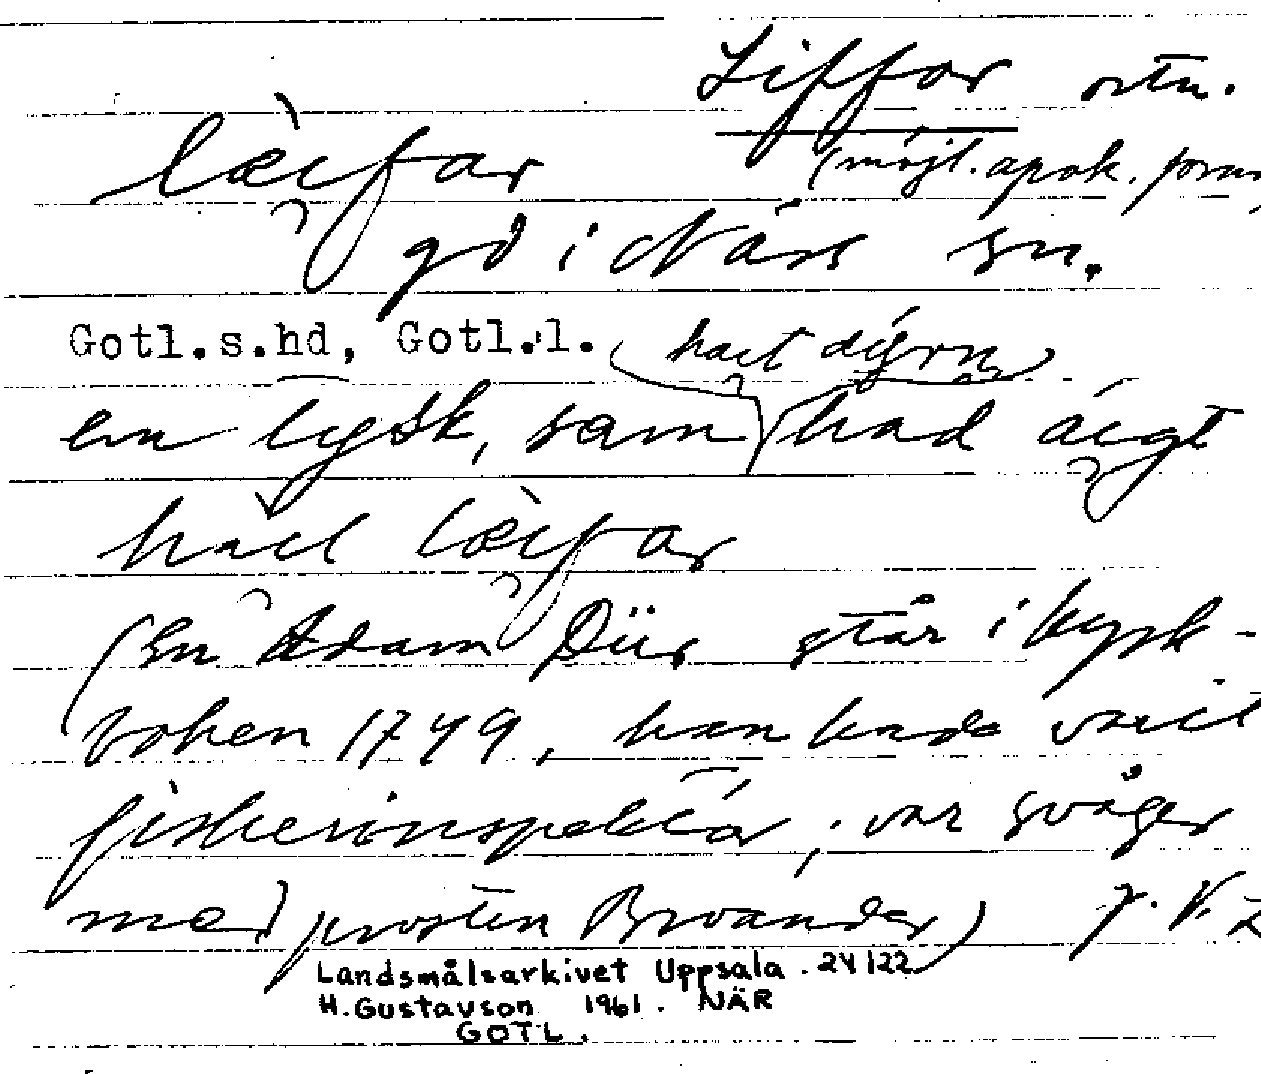 Liffor ortn.
(möjl. apok. form)
læifar
gd i Närs sn.
Gotl.s.hd, Gotl.l.
(hæit dýrn)
en tysk, sam had áigt
hæil læifar
(En Adam Düs står i kyrk-
boken 1749, han hade varit
fiskerinspektör, var svåger
med prosten Broander)
Landsmålsarkivet Uppsala. 24122
H. Gustavson 1961. NÄR
GOTL.